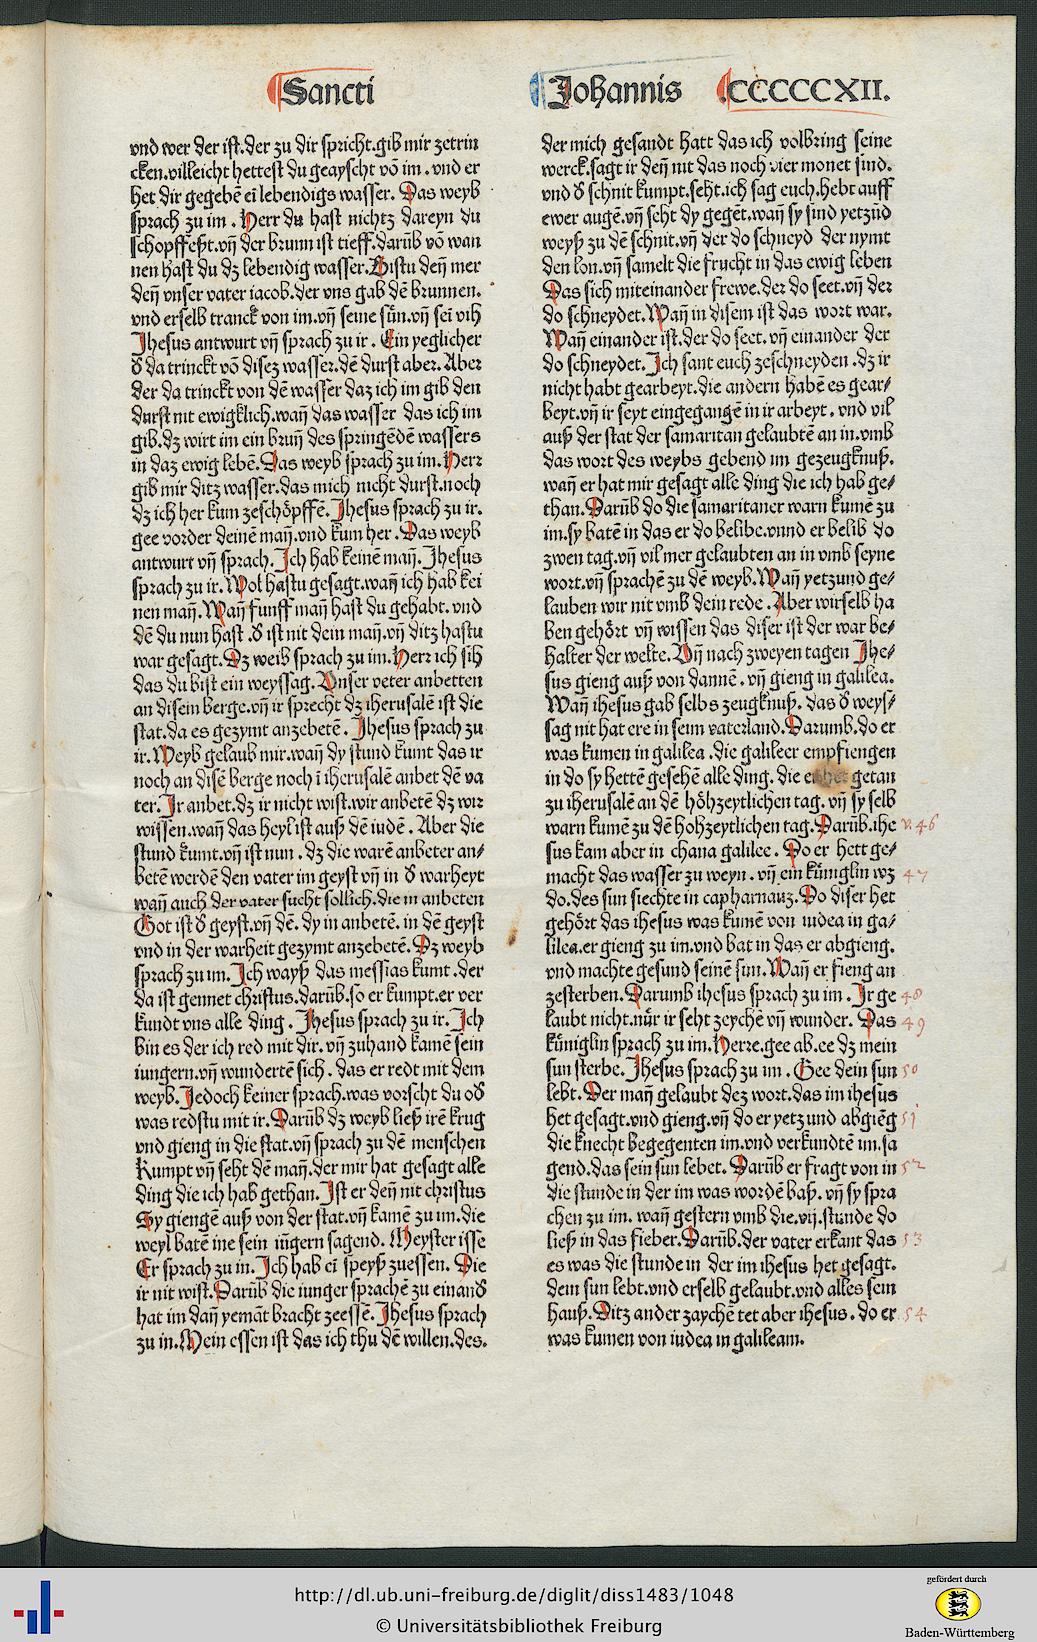 Sancti
Johannis
.CCCCCXII.
vnd wer der ist.der zu dir spricht.gib mir zetrin
cken.villeicht hettest du geayscht vō im.vnd er
het dir gegebē eī lebendigs wasser. Das weyb
sprach zu im. Herr du hast nichtz dareyn du
schopffeßt.vn̄ der brunn ist tieff.darūb vō wan
nen hast du dz lebendig wasser.Bistu den̄ mer
den̄ vnser vater iacob.der vns gab dē brunnen.
vnd erselb tranck von im.vn̄ seine sūn.vn̄ sei vih
Jhesus antwurt vn̄ sprach zu ir. Ein yeglicher
d̄ da trinckt vō disez wasser.dē durst aber. Aber
der da trinckt von dē wasser daz ich im gib den
durst nit ewigklich.wan̄ das wasser das ich im
gib.dz wirt im ein brun̄ des springēdē wassers
in daz ewig lebē.Das weyb sprach zu im.Herr
gib mir ditz wasser.das mich nicht durst.noch
dz ich her kum zeschöpffē. Jhesus sprach zu ir.
gee vorder deinē man̄.vnd kum her. Das weyb
antwurt vn̄ sprach. Ich hab keinē man̄. Jhesus
sprach zu ir.Wol hastu gesagt.wan̄ ich hab kei
nen man̄.Wan̄ funff man̄ hast du gehabt.vnd
dē du nun hast.d̄ ist nit dein man̄.vn̄ ditz hastu
war gesagt.Dz weib sprach zu im.Herr ich sih
das du bist ein weyssag.Vnser veter anbetten
an disem berge.vn̄ ir sprecht dz iherusalē ist die
stat.da es gezymt anzebetē. Jhesus sprach zu
ir.Weyb gelaub mir.wan̄ dy stund kumt das ir
noch an disē berge noch ī iherusalē anbet dē va
ter.Ir anbet.dz ir nicht wist.wir anbetē dz wir
wissen.wan̄ das heyl ist auß dē iudē. Aber die
stund kumt.vn̄ ist nun. dz die warē anbeter an⸗
betē werdē den vater im geyst vn̄ in d̄ warheyt
wan̄ auch der vater sucht sollich.die in anbeten
Got ist d̄ geyst.vn̄ dē. dy in anbetē. in dē geyst
vnd in der warheit gezymt anzebetē. Dz weyb
sprach zu im. Ich wayß das messias kumt.der
da ist gennet christus.darūb.so er kumpt.er ver
kundt vns alle ding. Jhesus sprach zu ir. Ich
bin es der ich red mit dir.vn̄ zuhand kamē sein
iungern.vn̄ wundertē sich. das er redt mit dem
weyb.Jedoch keiner sprach.was vorscht du od̄
was redstu mit ir.Darūb dz weyb ließ irē krug
vnd gieng in die stat.vn̄ sprach zu dē menschen
Kumpt vn̄ seht dē man̄.der mir hat gesagt alle
ding die ich hab gethan.Ist er den̄ nit christus
Sy giengē auß von der stat.vn̄ kamē zu im.die
weyl batē ine sein iūgern sagend. Meyster isse
Er sprach zu in.Ich hab eī speyß zuessen. Die
ir nit wist.Darūb die iunger sprachē zu einand̄
hat im dan̄ yemāt bracht zeessē. Jhesus sprach
zu in.Mein essen ist das ich thu dē willen.des.
der mich gesandt hatt das ich volbring seine
werck.sagt ir den̄ nit das noch vier monet sind.
vnd d̄ schnit kumpt.seht.ich sag euch.hebt auff
ewer augē.vn̄ seht dy gegēt.wan̄ sy sind yetzūd
weyß zu dē schnit.vn̄ der do schneyd der nymt
den lon.vn̄ samelt die frucht in das ewig leben
Das sich miteinander frewe.der do seet.vn̄ der
do schneydet.Wan̄ in disem ist das wort war.
Wan̄ einander ist.der do seet.vn̄ einander der
do schneydet. Ich sant euch zeschneyden.dz ir
nicht habt gearbeyt.die andern habē es gear⸗
beyt.vn̄ ir seyt eingegangē in ir arbeyt. vnd vil
auß der stat der samaritan gelaubtē an in.vmb
das wort des weybs gebend im gezeugknuß.
wan̄ er hat mir gesagt alle ding die ich hab ge⸗
than.Darūb do die samaritaner warn kumē zu
im.sy batē in das er do belibe.vnnd er belib do
zwen tag.vn̄ vil mer gelaubten an in vmb seyne
wort.vn̄ sprachē zu dē weyb.Wan̄ yetzund ge⸗
lauben wir nit vmb dein rede.Aber wirselb ha
ben gehört vn̄ wissen das diser ist der war be⸗
halter der welte.Vn̄ nach zweyen tagen Jhe⸗
sus gieng auß von dannē.vn̄ gieng in galilea.
Wan̄ ihesus gab selbs zeugknuß. das d̄ weys⸗
sag nit hat ere in seim vaterland.Darumb.do er
was kumen in galilea.die galileer empfiengen
in do sy hettē gesehē alle ding.die er het getan
zu iherusalē an dē höhzeytlichen tag. vn̄ sy selb
warn kumē zu dē hohzeytlichen tag.Darūb.ihe v.46
sus kam aber in chana galilee. Do er hett ge⸗
macht das wasser zu weyn.vn̄ ein kūniglin wz 47
do.des sun siechte in capharnauz.Do diser het
gehört das ihesus was kumē von iudea in ga⸗
lilea.er gieng zu im.vnd bat in das er abgieng.
vnd machte gesund seinē sun.Wan̄ er fieng an
zesterben.Darumb ihesus sprach zu im. Ir ge 48
laubt nicht.nūr ir seht zeychē vn̄ wunder. Das 49
kūniglin sprach zu im.Herre.gee ab.ee dz mein
sun sterbe. Jhesus sprach zu im. Gee dein sun 50
lebt. Der man̄ gelaubt dez wort.das im ihesus
het gesagt.vnd gieng.vn̄ do er yetzund abgiēg 51
die knecht begegenten im.vnd verkundtē im.sa
gend.das sein sun lebet. Darūb er fragt von in 52
die stunde in der im was wordē baß. vn̄ sy spra
chen zu im. wan̄ gestern vmb die.vij.stunde do
ließ in das fieber.Darūb.der vater erkant das 53
es was die stunde in der im ihesus het gesagt.
dem sun lebt.vnd erselb gelaubt.vnd alles sein
hauß.Ditz ander zaychē tet aber ihesus. do er 54
was kumen von iudea in galileam.
http://dl.ub.uni-freiburg.de/diglit/diss1483/1048
© Universitätsbibliothek Freiburg
gefördert durch
Baden-Württemberg